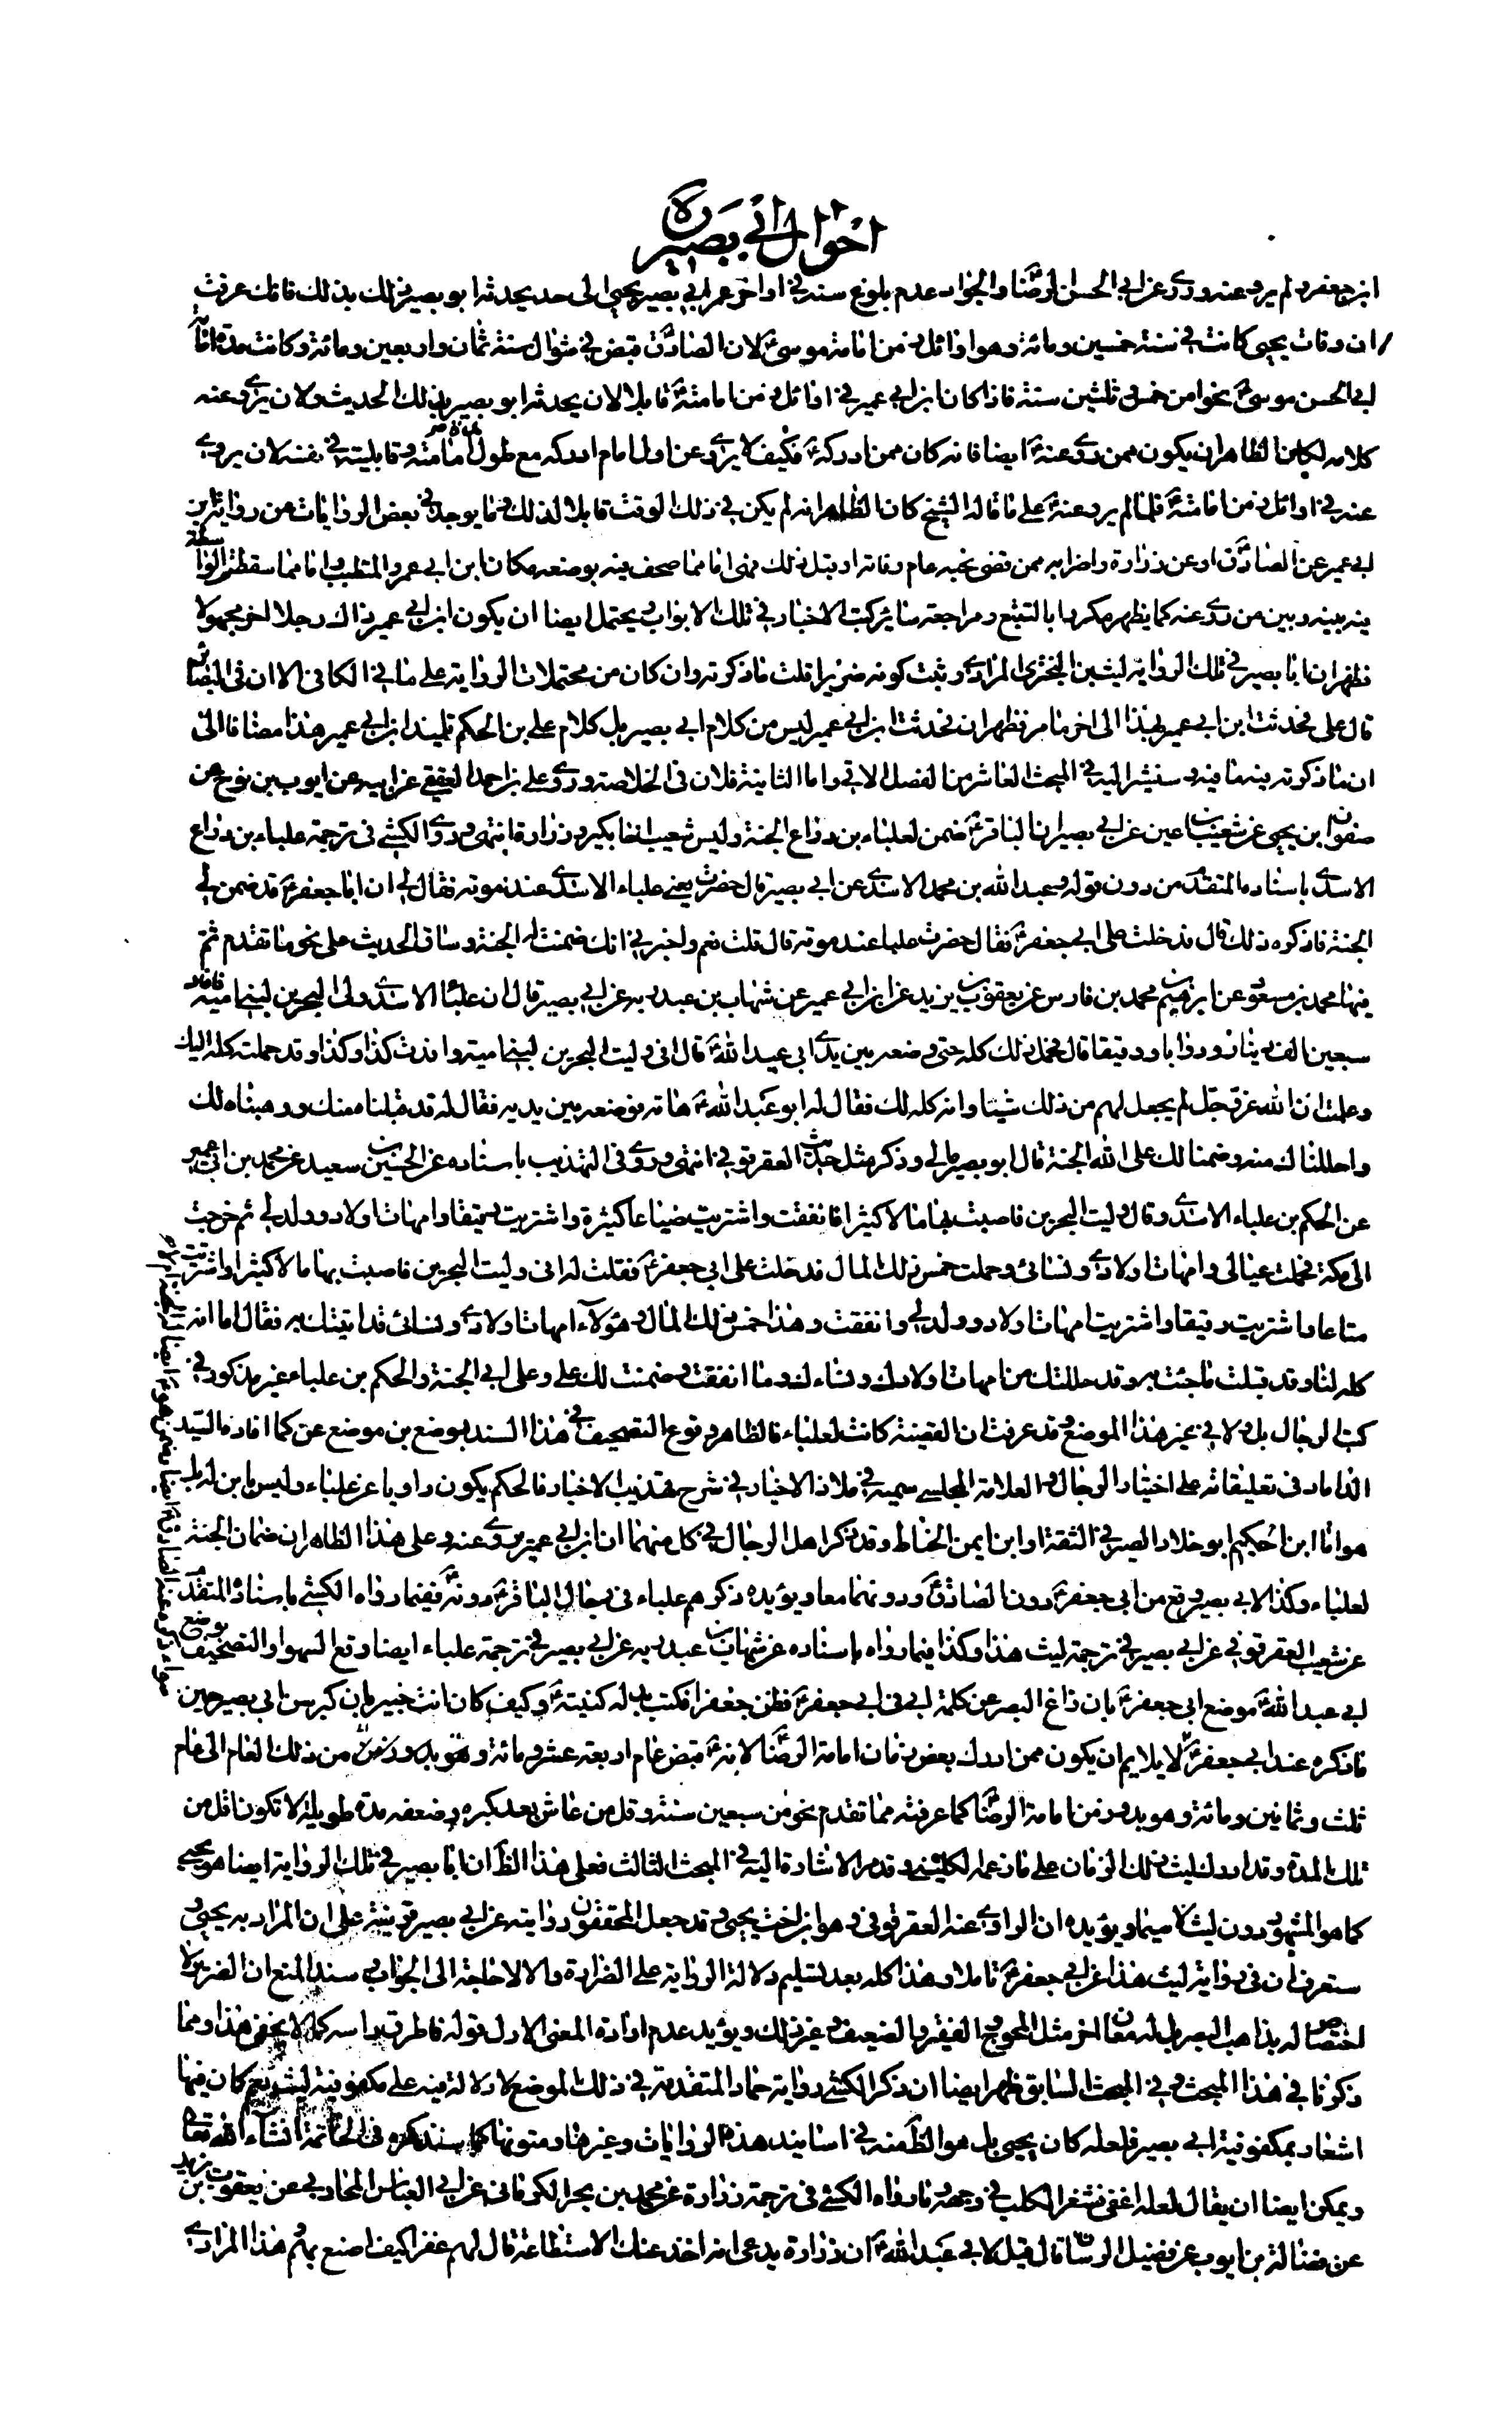 احوال ابي بصير ره
ابن جعفر و لم يرو عنه و روى عن ابي الحسن الرضا و الجواد عدم بلوغ سنه في اواخر عمر ابي بصير يحيى الى حد يحدثه ابو بصير بذلك فانك عرفت
ان وفات يحيى كانت في سنة خمسين و مائة و هو اوائل زمن امامة موسى ع لان الصادق ع قبض في شوال سنة ثمان و اربعين و مائة و كانت مدة امامة
ابي الحسن موسى ع نحوا من خمس و ثلثين سنة فاذا كان ابن ابي عمير في اوائل زمن امامته ع قابلا لان يحدثه ابو بصير بذلك الحديث و لان يروى عنه
كلامه لكان الظاهر ان يكون ممن روى عنه ع ايضا فانه كان ممن ادركه ع فكيف لا يروى عن اول امام ادركه مع طول امامته و قابليته في نفسه لان يروي
عنه في اوائل زمن امامته ع فلما لم يرو عنه ع على ما قاله الشيخ كان الظاهر انه لم يكن في ذلك الوقت قابلا لذلك فما يوجد في بعض الروايات من رواية ابن
ابي عمير عن الصادق ع او عن زرارة و اضرابه ممن قضى نحبه عام وفاته او قبل ذلك فهى اما مما صحف فيه بوضعه مكان ابن ابي عمر و المتطبب و اما مما سقطت الواسطة
فيه بينه و بين من روى عنه كما يظهر مكررا بالتتبع و مراجعة سائر كتب الاخبار في تلك الابواب و يحتمل ايضا ان يكون ابن ابي عمير ذاك رجلا اخر مجهولا
فظهر ان ابا بصير في تلك الرواية ليث بن البختري المرادي و ثبت كونه ضريرا قلت ما ذكرته و ان كان من محتملات الرواية على ما في الكافي الا ان في البصائر
قال على فحدثت ابن ابي عمير بهذا الى اخر ما مر فظهر ان فحدثت ابن ابي عمير ليس من كلام ابي بصير بل كلام علي بن الحكم تلميذ ابن ابي عمير هذا مضافا الى
ان ما ذكرته فيه ما فيه و سنشير اليه في المبحث العاشر من الفصل الاتي و اما الثانية فلان في الخلاصة و روى علي بن احمد العقيقي عن ابيه عن ايوب بن نوح عن
صفوان بن يحيى عن شعيب بن اعين عن ابي بصير ان الباقر ع ضمن لعلباء بن دراع الجنة و ليس شعيب اخا بكير و زرارة انتهى و روى الكشي في ترجمة علباء بن دراع
الاسدي باسناده المتقدم من دون قوله و عبد الله بن محمد الاسدي عن ابي بصير قال حضرت يعني علباء الاسدي عند موته فقال لي ان ابا جعفر ع قد ضمن لي
الجنة فاذكره ذلك قال فدخلت على ابي جعفر ع فقال حضرت علباء عند موته قال قلت نعم و اخبرني انك ضمنت له الجنة و ساق الحديث على نحو ما تقدم ثم
فيها محمد بن مسعود عن ابراهيم بن محمد بن فارس عن يعقوب بن يزيد عن ابن ابي عمير عن شهاب بن عبد ربه عن ابي بصير قال ان علباء الاسدي ولى البحرين لبني امية فافاد
سبعين الف دينار و دوابا و رقيقا قال فحمل ذلك كله حتى وضعه بين يدي ابي عبد الله ع قال اني وليت البحرين لبني امية و افدت كذا و كذا و قد حملت كله اليك
و علمت ان الله عز و جل لم يجعل لهم من ذلك شيئا و انه كله لك فقال له ابو عبد الله ع هاته فوضعه بين يديه فقال له قد قبلناه منك و وهبناه لك
و احللناك منه و ضمنا لك على الله الجنة قال ابو بصير مالي و ذكر مثل حديث العقرقوفي انتهى و روى في التهذيب باسناده عن الحسين بن سعيد عن محمد بن ابي عمير
عن الحكم بن علباء الاسدي و قال وليت البحرين فاصبت بها مالا كثيرا فانفقت و اشتريت ضياعا كثيرة و اشتريت رقيقا و امهات اولاد و ولد لي ثم خرجت
الى مكة فحملت عيالي و امهات اولادي و نسائي و حملت خمس ذلك المال فدخلت على ابي جعفر ع فقلت له اني وليت البحرين فاصبت بها مالا كثيرا و اشتريت
متاعا و اشتريت رقيقا و اشتريت امهات اولاد و ولد لي و انفقت و هذا خمس ذلك المال و هؤلاء امهات اولادي و نسائي قد اتيتك به فقال اما انه
كله لنا و قد قبلت ما جئت به و قد حللتك من امهات اولادك و نساءك و ما انفقت و ضمنت لك علي و على ابي الجنة و الحكم بن علباء غير مذكور في
كتب الرجال بل و لا في غير هذا الموضع و قد عرفت ان القضية كانت لعلباء فالظاهر وقوع التصحيف في هذا السند بوضع بن موضع عن كما افاده السيد
الداماد في تعليقاته على اختيار الرجال و العلامة المجلسي سميه في ملاذ الاخيار في شرح تهذيب الاخبار فالحكم يكون راويا عن علباء و ليس بابن له بل
هو اما ابن حكيم ابو خلاد الصيرفي الثقة او ابن ايمن الحناط و قد ذكر اهل الرجال في كل منهما ان ابن ابي عمير يروى عنه و على هذا الظاهر ان ضمان الجنة
لعلباء و كذا لابي بصير وقع من ابي جعفر ع دون الصادق ع و دونهما معا و يؤيده ذكرهم علباء في رجال الباقر ع دونه ع ففيما رواه الكشي باسناده المتقدم
عن شعيب العقرقوفي عن ابي بصير في ترجمة ليث هذا و كذا فيما رواه باسناده عن شهاب بن عبد ربه عن ابي بصير في ترجمة علباء ايضا وقع السهو او التصحيف بوضع
ابي عبد الله ع موضع ابي جعفر ع بان زاغ البصر عن كلمة ابي في ابي جعفر ع فظن جعفرا فكتب بدله كنيته ع و كيف كان انت خبير بان كبر سن ابي بصير حين
ما ذكره عند ابي جعفر ع لا يلايم ان يكون ممن ادرك بعض زمان امامة الرضا ع لانه ع قبض عام اربعة عشر و مائة و هو من ذلك العام الى عام
ثلث و ثمانين و مائة و هو بدو زمن امامة الرضا ع كما عرفته مما تقدم نحو من سبعين سنة و قل من عاش بعد كبره و ضعفه مدة طويلة لا تكون اقل من
تلك المدة و قد ادرك ليث ذلك الزمان على ما زعمه الكشي و قد مر الاشارة اليه في المبحث الثالث فعلى هذا الظ ان ابا بصير في تلك الرواية ايضا هو يحيى
كما هو المشهور دون ليث لا سيما و يؤيده ان الراوي عنه العقرقوفي و هو ابن اخت يحيى و قد جعل المحققون روايته عن ابي بصير قرينة على ان المراد به يحيى و
ستعرف ان في رواية ليث هذا عن ابي جعفر ع تاملا و هذا كله بعد تسليم دلالة الرواية على الضرارة و الا لا حاجة الى الجواب و سند المنع ان الضرير لا
اختصاص له بذاهب البصر بل له معان اخر مثل المحوج الفقير و الضعيف و غير ذلك و يؤيد عدم ارادة المعنى الاول قوله فاطرق راسه كما لا يخفى هذا و مما
ذكرنا في هذا المبحث و في المبحث السابق ظهر ايضا ان ذكر الكشي رواية حماد المتقدمة في ذلك الموضع لا دلالة فيه على مكفوفية ليث نعم كان فيها
اشعار بمكفوفية ابي بصير فلعله كان يحيى بل هو الظ منه في اسانيد هذه الروايات و غيرها و متونها كما سنذكره في الخاتمة انشاء الله تعالى
و يمكن ايضا ان يقال لعله اغفى فشغر الكلب في وجهه و ما رواه الكشي في ترجمة زرارة عن محمد بن بحر الكرماني عن ابي العباس المحاربي عن يعقوب بن يزيد
عن فضالة بن ايوب عن فضيل الرسان قال قيل لابي عبد الله ع ان زرارة يدعي انه اخذ عنك الاستطاعة قال لهم عفرا كيف اصنع بهم و هذا المرادي